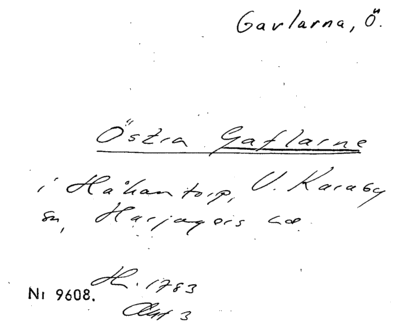 Gavlarna, Ö.
Östra Gaflarne
i Håkantorp, V. Karaby
sn, Harjagers hd.
Hm. 1783
Akt 3
Nr 9608.